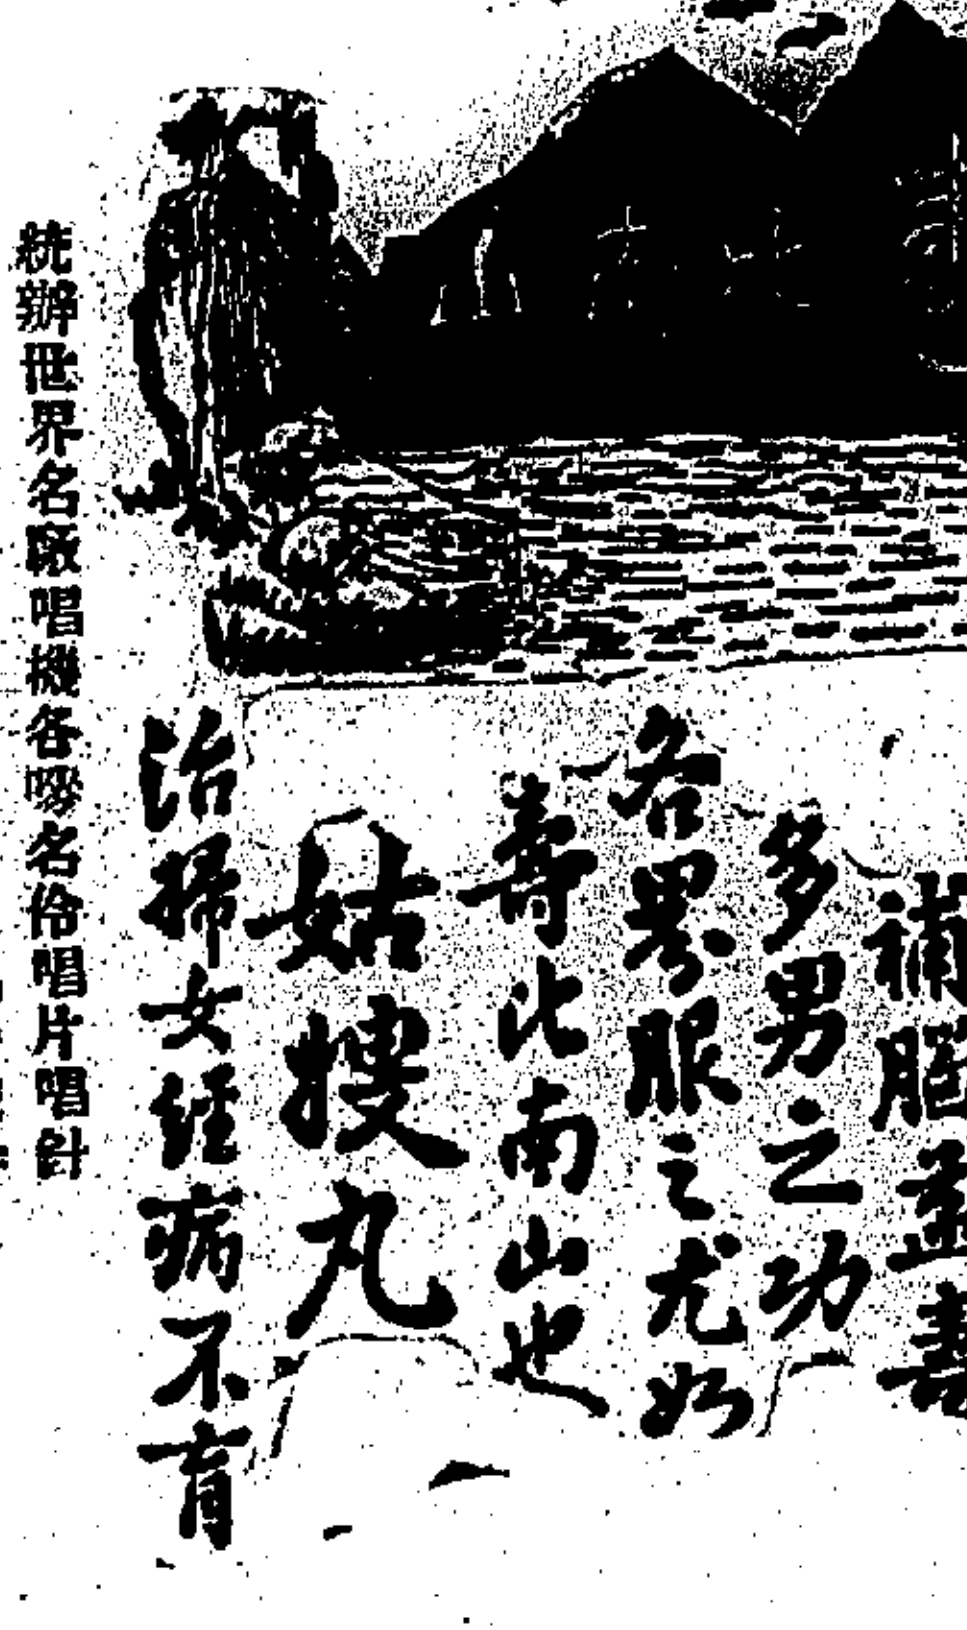 補腦益壽
多男之功
各界服之尤如
壽比南山也
姑嫂丸
治婦女經病不育
統辦世界名廠唱機各嘜名伶唱片唱針